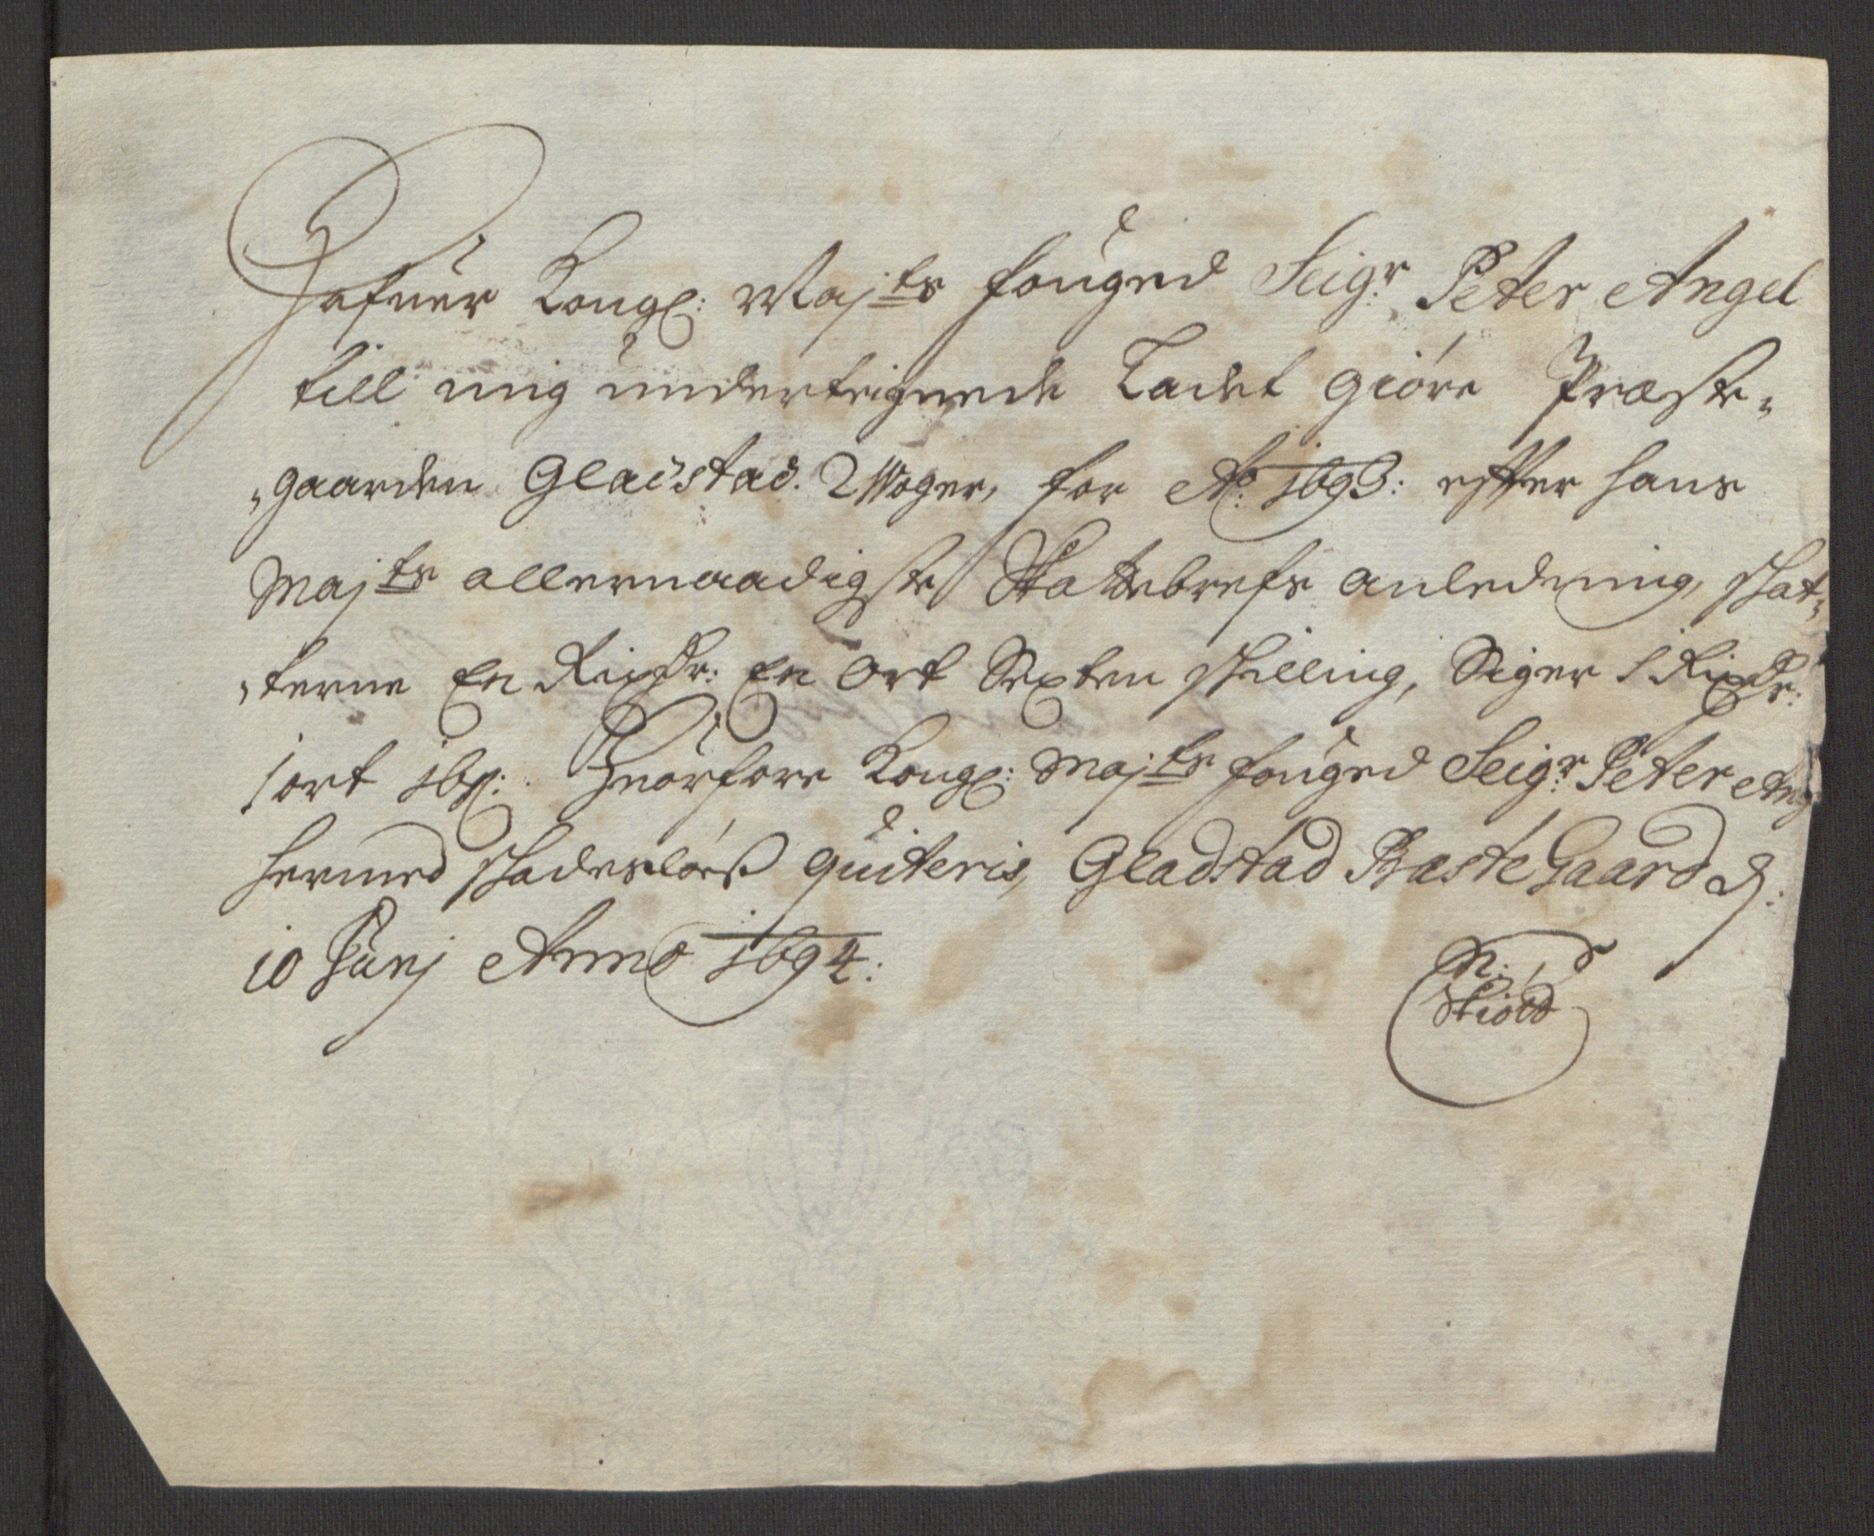 Hafuer Kongl: Majts fouged Seigr Peter Angel
till mig underteignede Ladet giöre Præste„
„gaarden Gladstad. 2 Woger, for Ao: 1693: effter hans
Majts allernaadigste Skattebrefs anledning, schat„
„terne En Rixdr: En Ort Sexten schilling, Siger 1 Rixdr:
1 ort 16 s: Huorfore Kongl: Majts fouged Seigr Peter Ang
hermed schadeslöes quiteris, Gladstad Præste Gaard d:
10 Junj Anno 1694:
N:
Skiöld